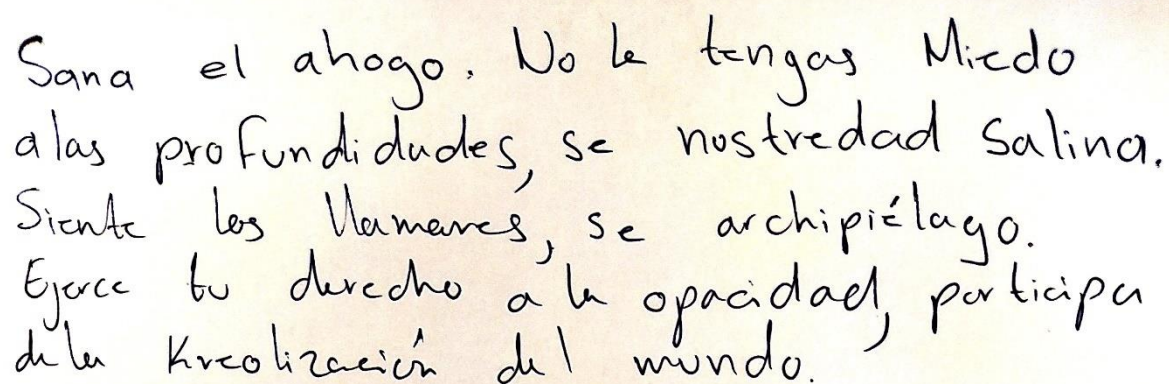 Sana el ahogo. No le tengas Miedo
a las profundidades, se nostredad Salina.
Siente los llamares, se archipiélago.
Ejerce tu derecho a la opacidad, participa
de la Kreolización del mundo.